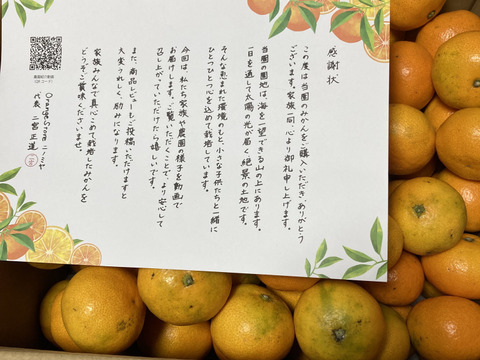 感謝状
この度は当園のみかんをご購入いただき、ありがとう
ございます。家族一同、心より御礼申し上げます。
当園の園地は、海を一望できる山の上にあります。
一日を通して太陽の光が届く絶景の土地です。
そんな恵まれた環境のもと、小さな子供たちと一緒に
ひとつひとつ心を込めて栽培しています。
今回は、私たち家族や農園の様子を動画で
お届けします。ご覧いただくことで、より安心して
召し上がっていただけたら嬉しいです。
また、商品レビューもご投稿いただけますと
大変うれしく、励みになります。
家族みんなで真心こめて栽培したみかんを
どうぞご賞味くださいませ。
Orange Store ニノミヤ
代表 二宮正道
農園紹介動画